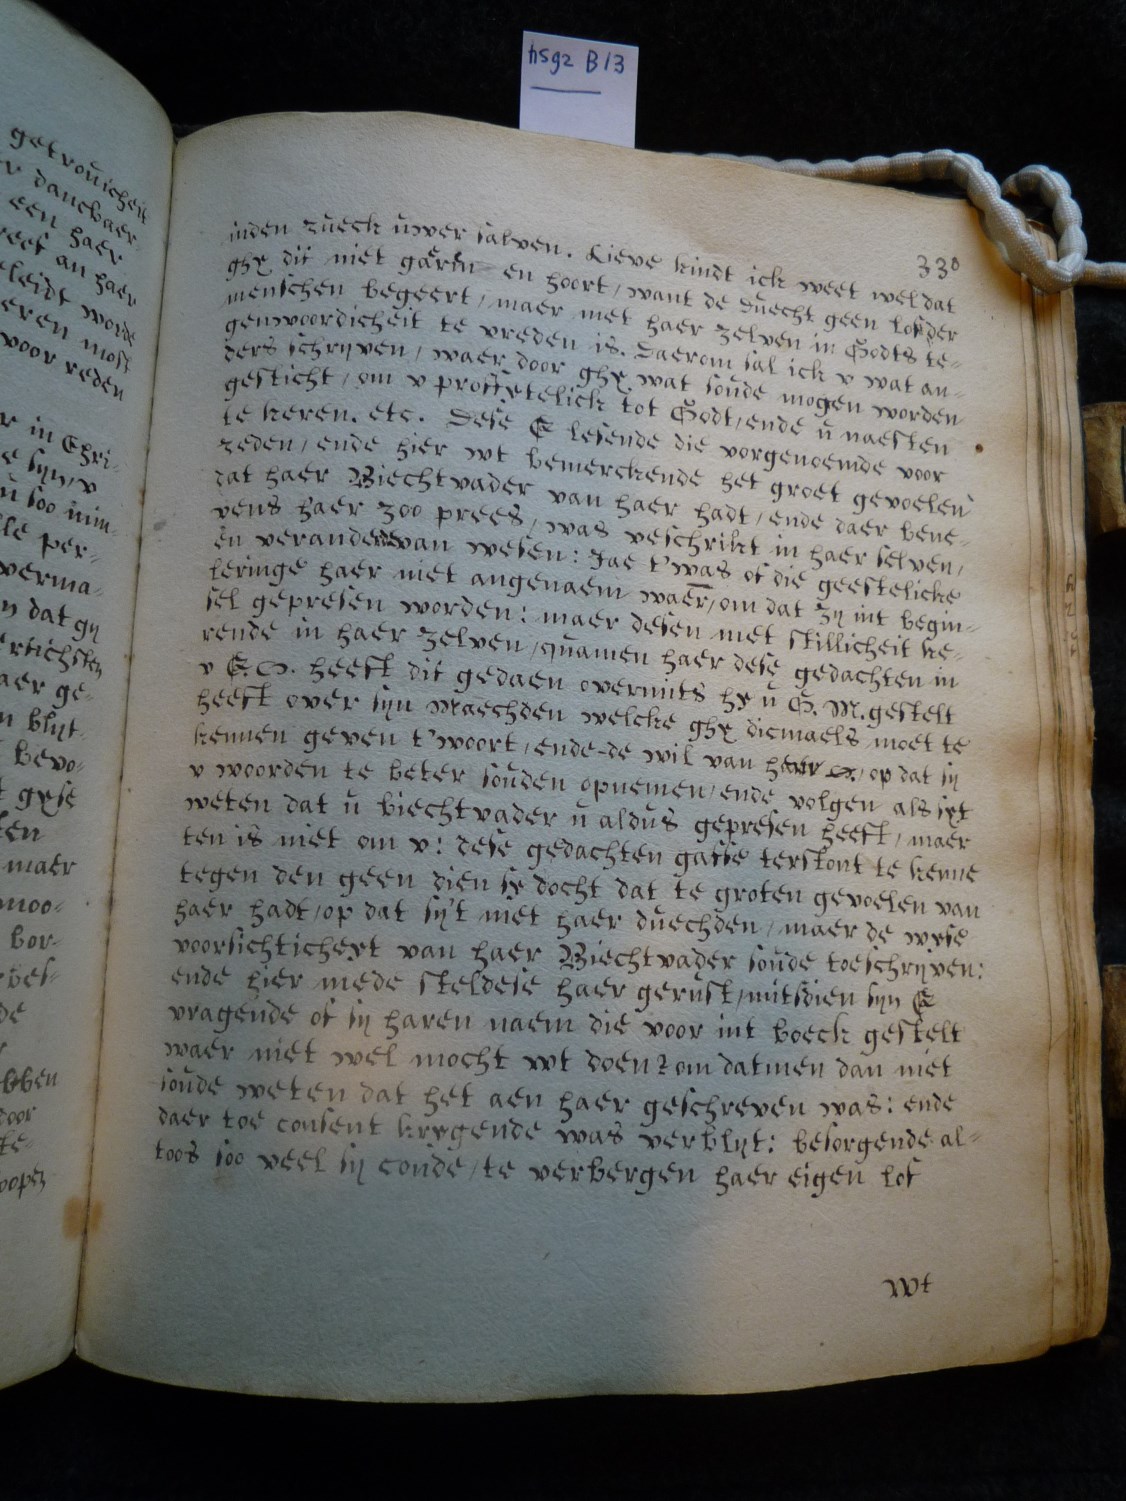 hsgz B13
330
inden zueck uwer salven. Lieve kindt ick weet wel dat
ghy dit niet gaern en hoort, want de duecht geen lof der
menschen begeert, maer met haer zelven in Godts te-
genwoordicheit te vreden is. Daerom sal ick v wat an-
ders schryven, waer door ghy wat soude mogen worden
gesticht, om v proffytelick tot Godt, ende u naesten
te keren. etc. Dese E lesende die vorgenoemde voor
zeden, ende hier wt bemerckende het groet gevoelen
dat haer Biechtvader van haer hadt, ende daer bene-
vens haer zoo prees, was veschrikt in haer selven,
en veranderde van wesen: Jae t'was of die geestelicke
leringe haer niet angenaem waer, om dat zy int begin-
sel gepresen worden: maer desen met stillicheit ke-
rende in haer zelven, quamen haer dese gedachten in
v E. O. heeft dit gedaen overmits hy u G. M. gestelt
heeft over syn Maechden welcke ghy diemaels moet te
kennen geven t'woort, ende de wil van haer op dat sy
v woorden te beter souden opnemen, ende volgen als syt
weten dat u biechtvader u aldus gepresen heeft, maer
ten is niet om v: dese gedachten gaf se terstont te kenne
tegen den geen dien sy docht dat te groten gevoelen van
haer hadt, op dat sy't niet haer duechden, maer de wyse
voorsichticheyt van haer Biechtvader soude toeschryven:
ende hier mede steldese haer gerust, mitsdien syn E
vragende of sy haren naem die voor int boeck gestelt
waer niet wel mocht wt doen? om datmen dan niet
soude weten dat het aen haer geschreven was: ende
daer toe consent krygende was verblyt: besorgende al-
toos soo veel sy conde, te verbergen haer eigen lof
wt